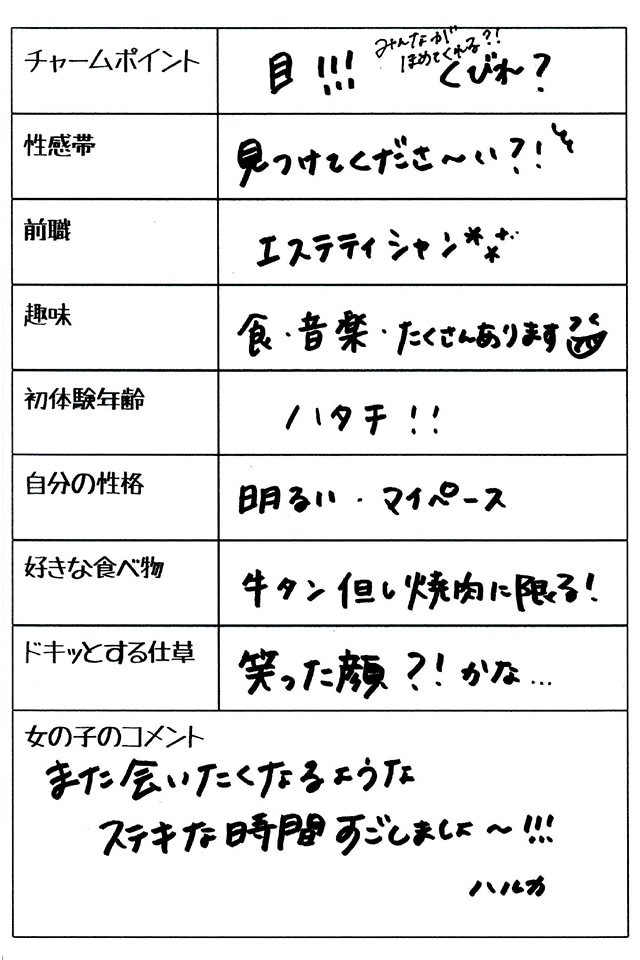 チャームポイント
目!!! みんなが
ほめてくれる?!
くびれ?
性感帯
見つけてくださ〜い?!
前職
エステティシャン
趣味
食・音楽・たくさんあります
初体験年齢
ハタチ!!
自分の性格
明るい・マイペース
好きな食べ物
牛タン 但し焼肉に限る!
ドキッとする仕草
笑った顔?!かな...
女の子のコメント
また会いたくなるような
ステキな時間すごしましょ〜!!!
ハルカ